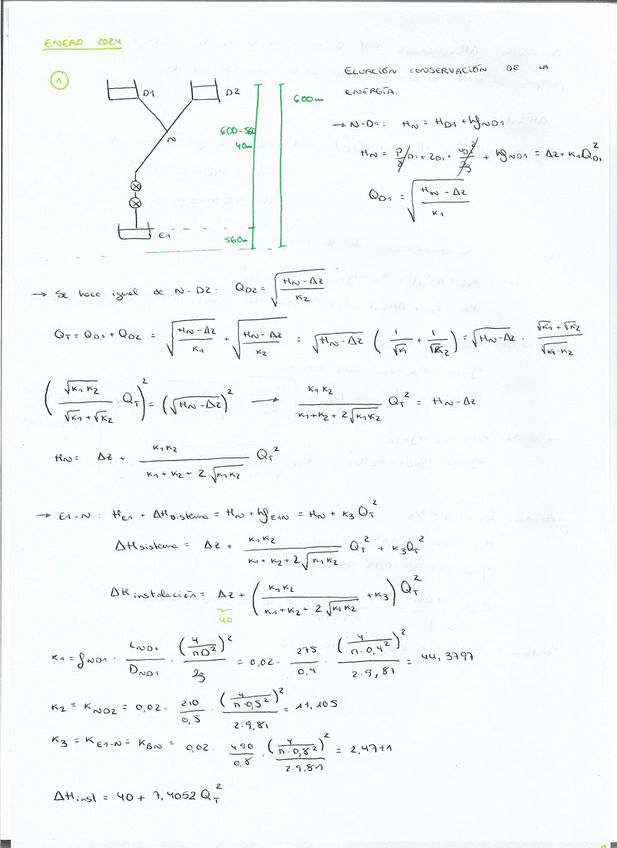 ENERO 2024
1
D1
D2
N
E1
600m
600-560
40m
560m
ECUACIÓN CONSERVACIÓN DE LA
ENERGÍA.
→ N-D1: HN = HD1 + hfND1
HN = P/γ D1 + ZD1 + VD1²/2g + hfND1 = ΔZ + K1QD1²
QD1 = √((HN - ΔZ)/K1)
→ Se hace igual de N-D2: QD2 = √((HN - ΔZ)/K2)
QT = QD1 + QD2 = √((HN - ΔZ)/K1) + √((HN - ΔZ)/K2) = √(HN - ΔZ) (1/√K1 + 1/√K2) = √(HN - ΔZ) · (√K1 + √K2)/√(K1·K2)
(√(K1K2)/(√K1 + √K2) · QT)² = (√(HN - ΔZ))² → K1K2/(K1 + K2 + 2√(K1K2)) QT² = HN - ΔZ
HN = ΔZ + K1K2/(K1 + K2 + 2√(K1K2)) QT²
→ E1-N: HE1 + ΔHsistema = HN + hfE1N = HN + K3QT²
ΔHsistema = ΔZ + K1K2/(K1 + K2 + 2√(K1K2)) QT² + K3QT²
ΔHinstalación = ΔZ + (K1K2/(K1 + K2 + 2√(K1K2)) + K3) QT²
40
K1 = fND1 · LND1/DND1 · (4/πD²)²/2g = 0,02 · 275/0,4 · (4/π·0,4²)²/2·9,81 = 44,3797
K2 = KND2 = 0,02 · 210/0,5 · (4/π·0,5²)²/2·9,81 = 11,105
K3 = KE1-N = KBN = 0,02 · 490/0,8 · (4/π·0,8²)²/2·9,81 = 2,4711
ΔHinst = 40 + 7,4052 QT²